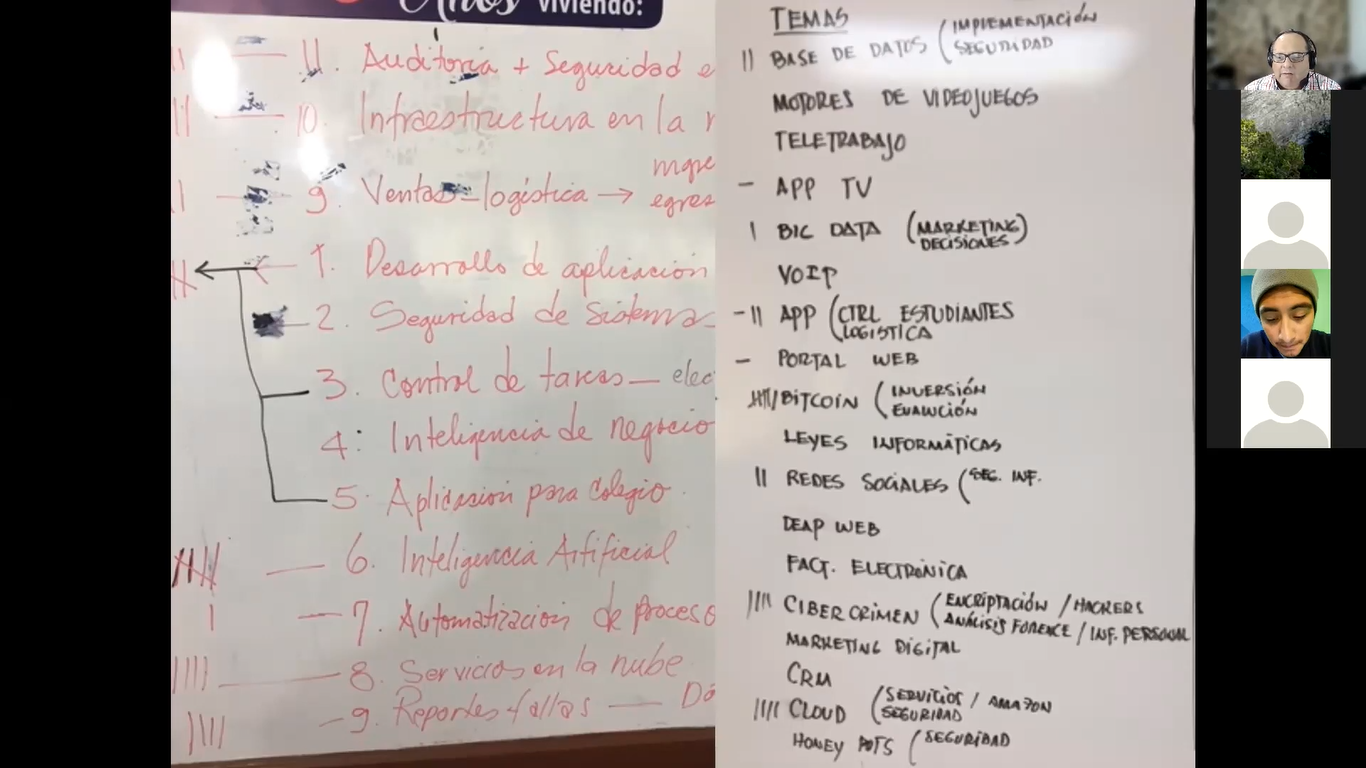 Años viviendo:
11. Auditoria + Seguridad e
10. Infraestructura en la r
9. Ventas - logística → egres
1. Desarrollo de aplicación
2. Seguridad de Sistema
3. Control de tareas — elec
4: Inteligencia de negocio
5. Aplicación para Colegio
6. Inteligencia Artificial
7. Automatización de proceso
8. Servicios en la nube
9. Reportes fallas —
TEMAS
|| BASE DE DATOS (IMPLEMENTACIÓN
SEGURIDAD
MOTORES DE VIDEOJUEGOS
TELETRABAJO
- APP TV
| BIG DATA (MARKETING)
DECISIONES)
VOIP
-|| APP (CTRL ESTUDIANTES
LOGISTICA
- PORTAL WEB
BITCOIN (INVERSIÓN
LEYES INFORMÁTICAS
|| REDES SOCIALES (SEG. INF.
DEAP WEB
FACT. ELECTRÓNICA
|||| CIBER CRIMEN (ENCRIPTACIÓN / HACKERS
ANÁLISIS FORENCE / INF. PERSONAL
MARKETING DIGITAL
CRM
|||| CLOUD (SERVICIOS / AMAZON
SEGURIDAD
HONEY POTS (SEGURIDAD